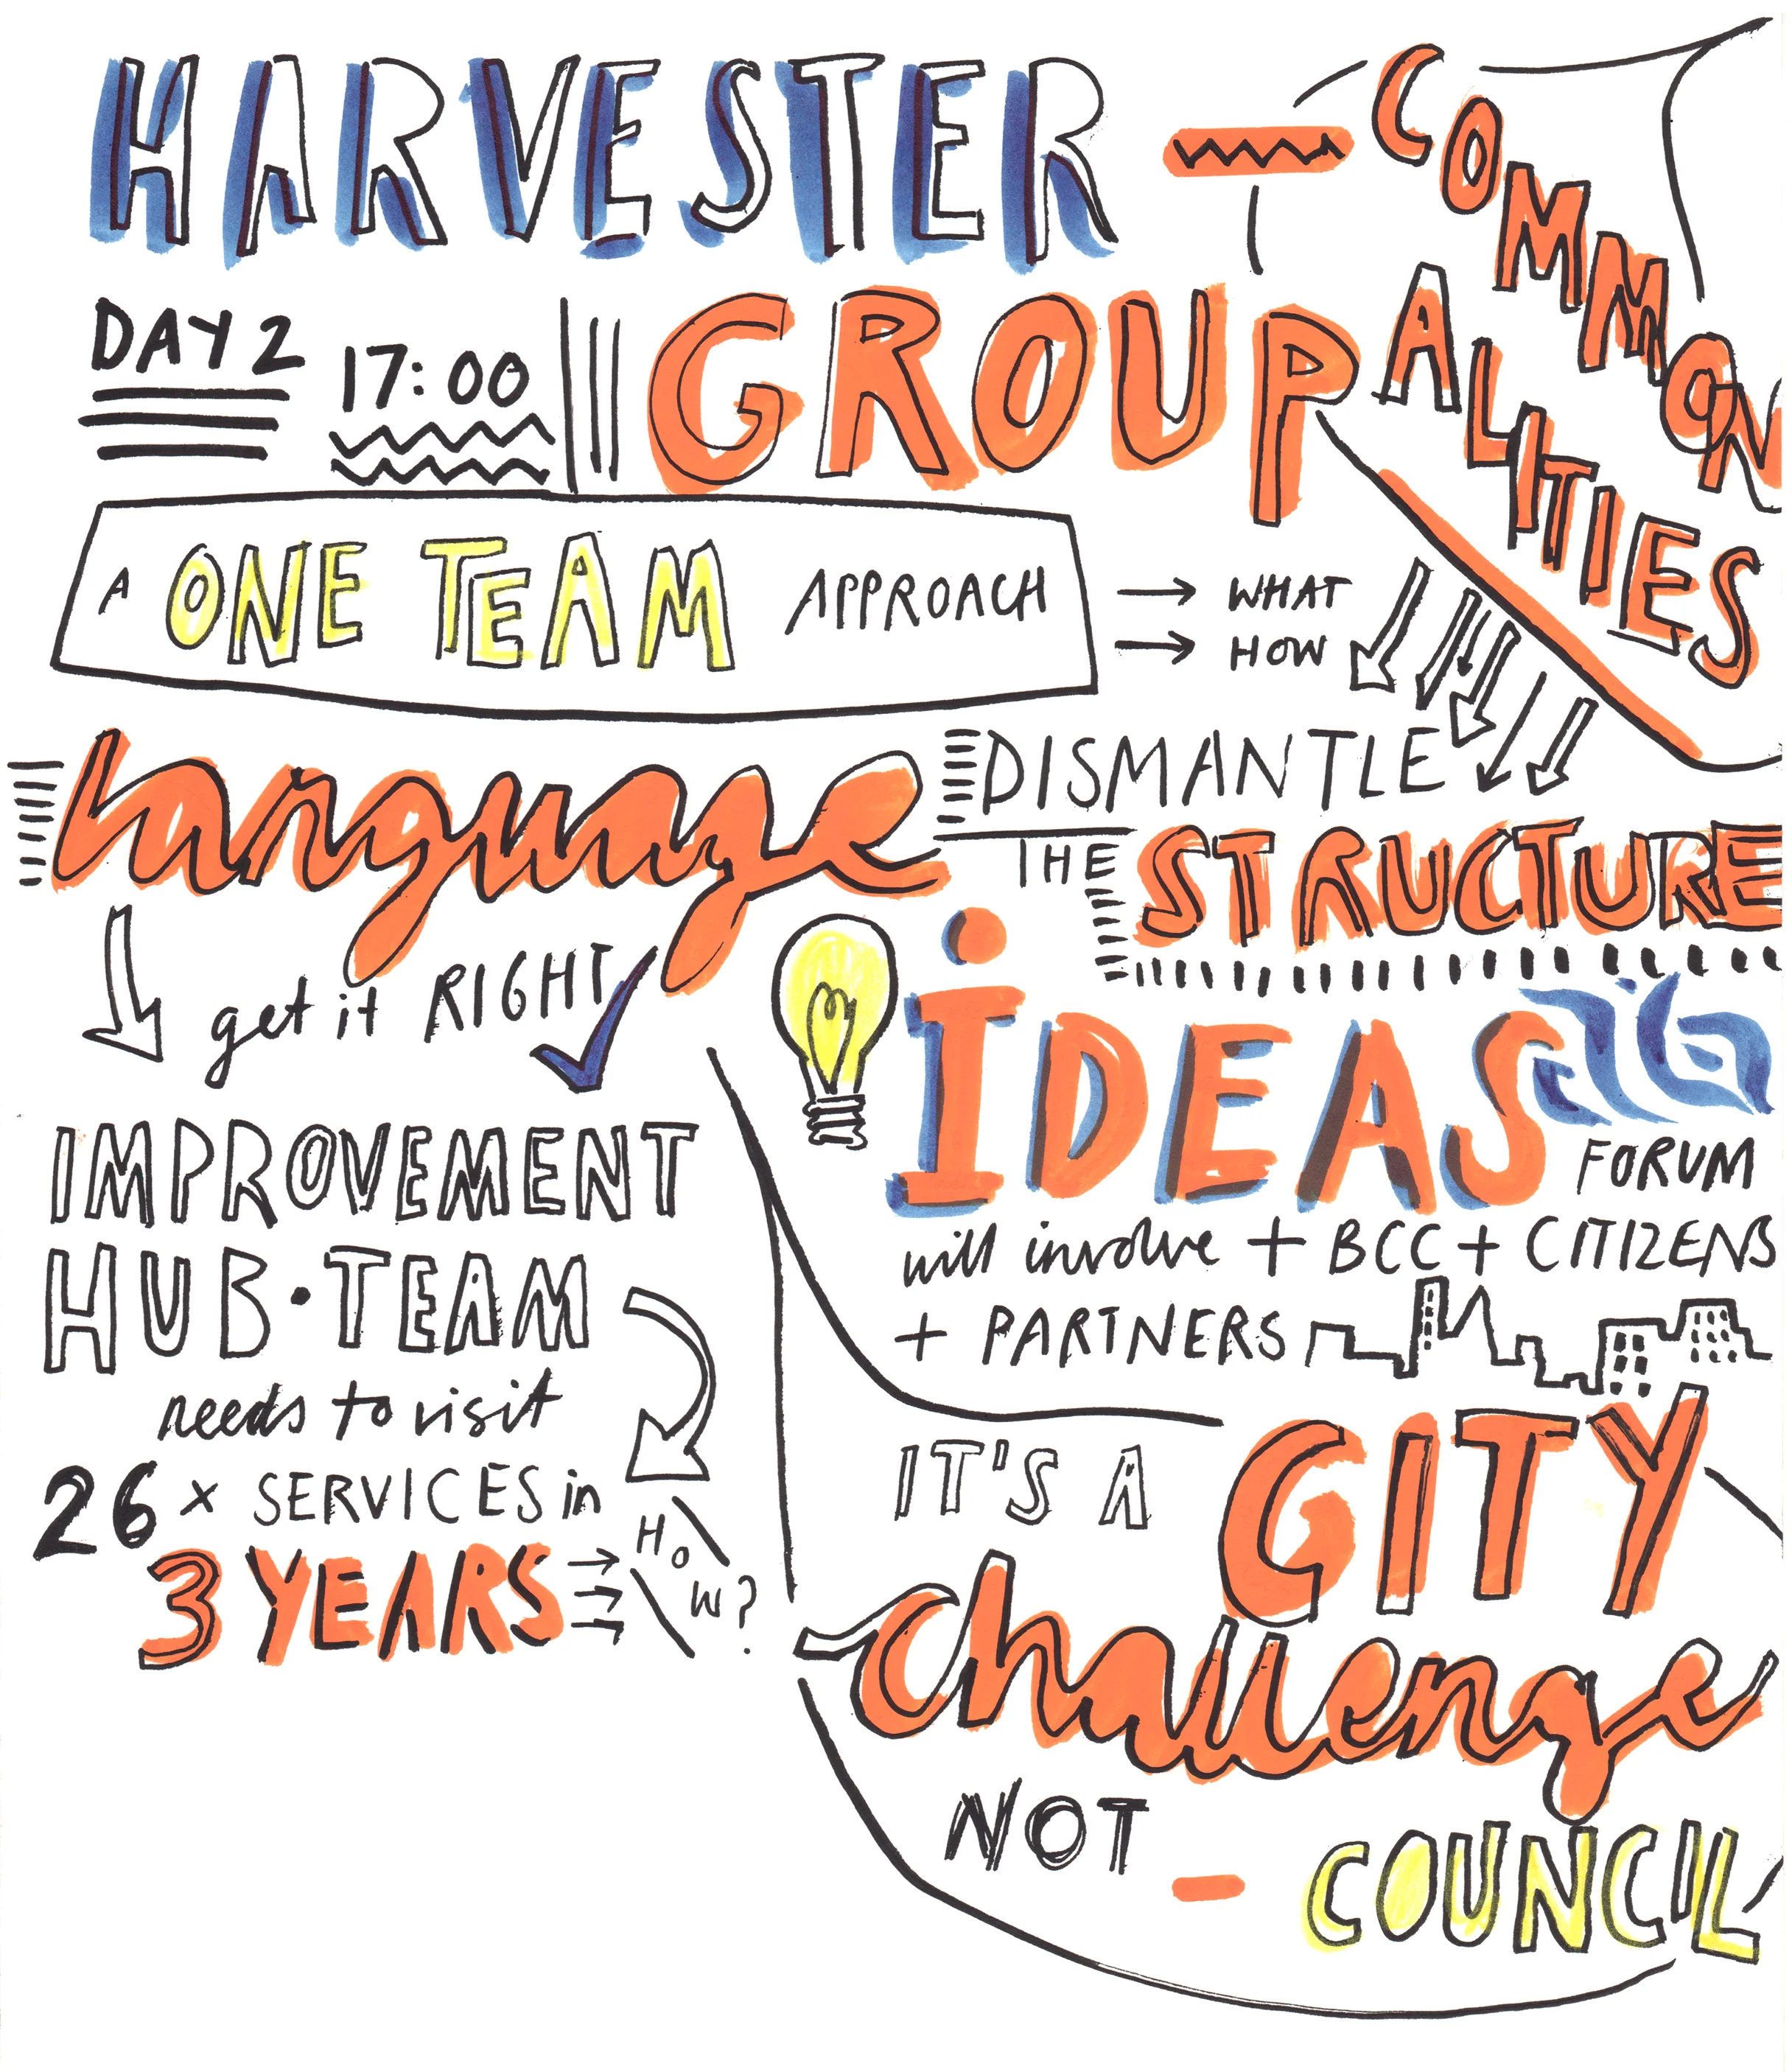 HARVESTER
COMMON
ALITIES
DAY 2
17:00
GROUP
A ONE TEAM APPROACH
WHAT
HOW
Language
get it RIGHT
DISMANTLE
THE STRUCTURE
iDEAS
FORUM
will involve + BCC + CITIZENS
+ PARTNERS
IMPROVEMENT
HUB • TEAM
needs to visit
26 x SERVICES in
3 YEARS
HOW?
IT'S A CITY
Challenge
NOT - COUNCIL